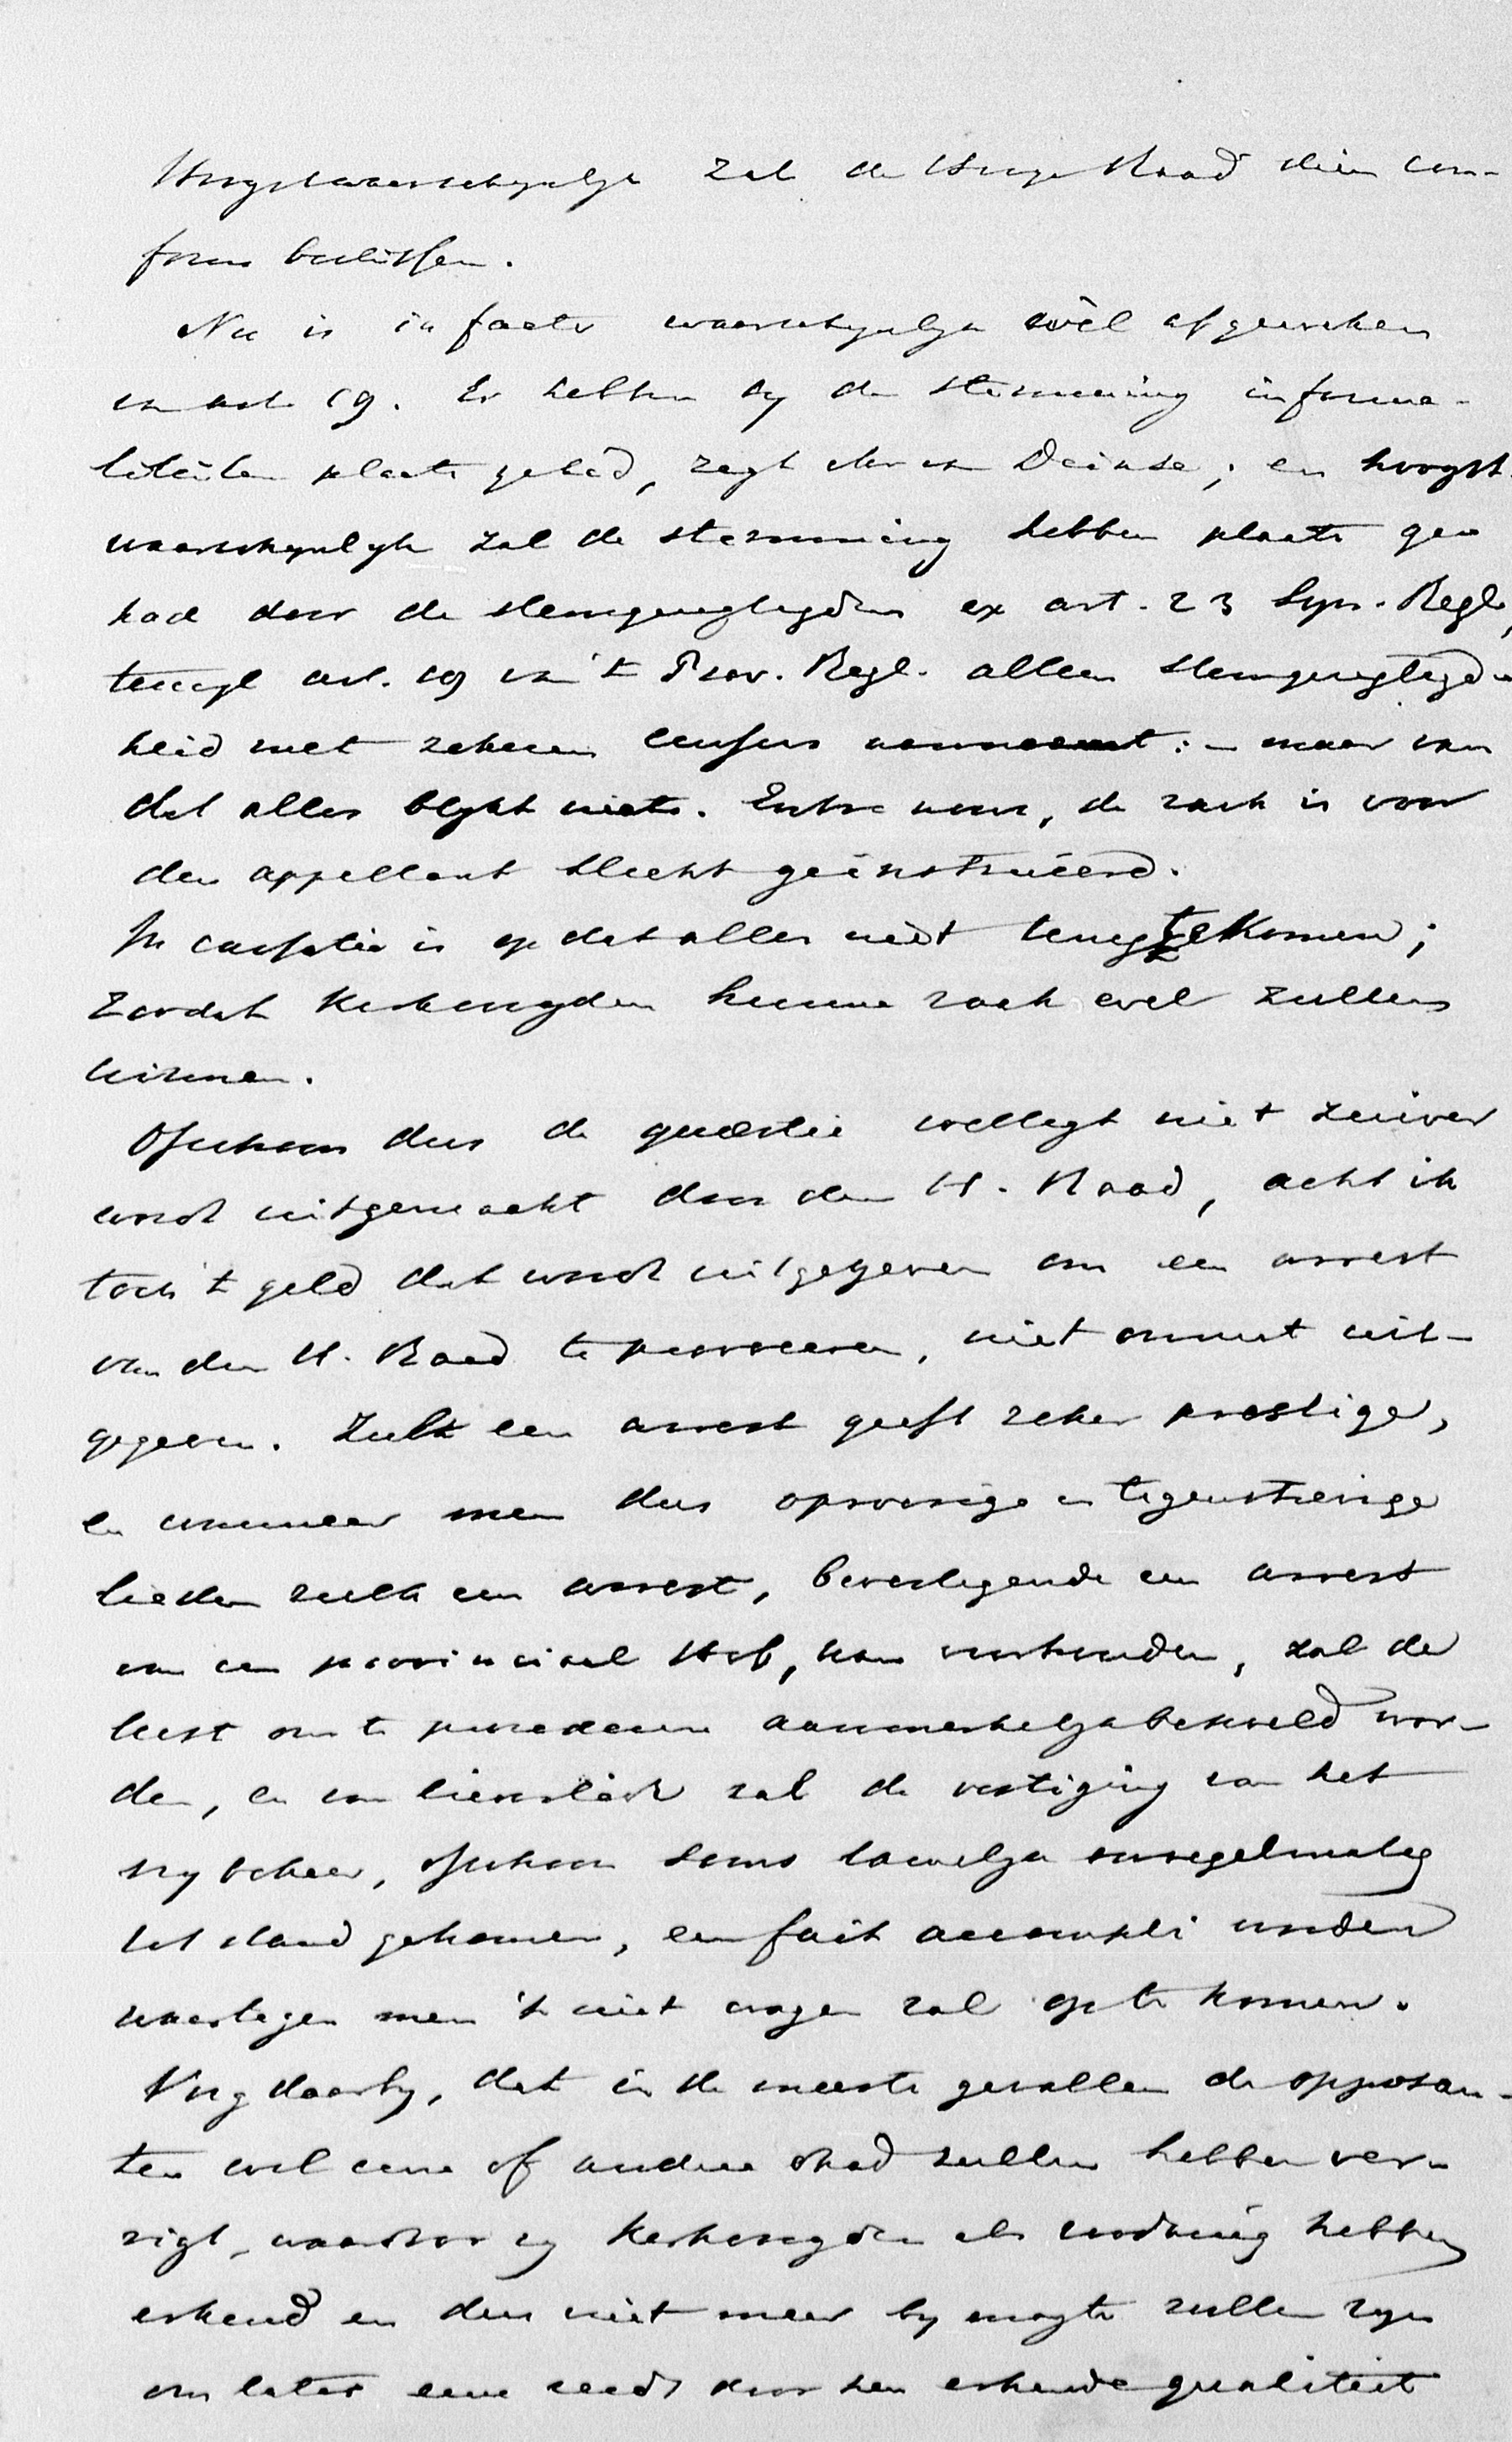 Hoogstwaarschynlyk zal de Hooge Raad dien con-
form beslissen.
Nu is in facto waarschynlyk wèl afgeweken
van art. 19. Er hebben by de stemming informa-
liteiten plaats gehad, zegt van Deinse; en hoogst-
waarschynlyk zal de stemming hebben plaats ge-
had door de stemgeregtigden ex art. 23 Syn. Regl.,
terwyl art. 19 van 't Prov. Regl. alleen stemgeregtigd-
heid met zekeren census aanneemt: – maar van
dat alles blykt niets. Entre nous, de zaak is voor
den appellant slecht geïnstrueerd.
In cassatie is op dat alles niet terug te komen;
zoodat Kerkvoogden hunne zaak wel zullen
winnen.
Ofschoon dus de quaestie wellegt niet zuiver
wordt uitgemaakt door den H. Raad, acht ik
toch 't geld dat wordt uitgegeven om een arrest
van den H. Raad te provoceren, niet onnut uit-
gegeven. Zulk een arrest geeft zeker prestige,
en wanneer men dus oproerige en tegenstrevige
lieden zulk een arrest, bevestigende een arrest
van een provinciaal Hof, kan voorhouden, zal de
lust om te procederen aanmerkelyk bekoeld wor-
den, en van lieverlede zal de vestiging van het
vry beheer, ofschoon soms taamelyk onregelmatig
tot stand gekomen, een fait accompli worden
waartegen men 't niet wagen zal op te komen.
Voeg daarby, dat in de meeste gevallen de opposan-
ten wel eene of andere daad zullen hebben ver-
rigt, waardoor zy Kerkvoogden als zoodanig hebben
erkend en dus niet meer by magte zullen zyn
om later eene reeds door hen erkende qualiteit